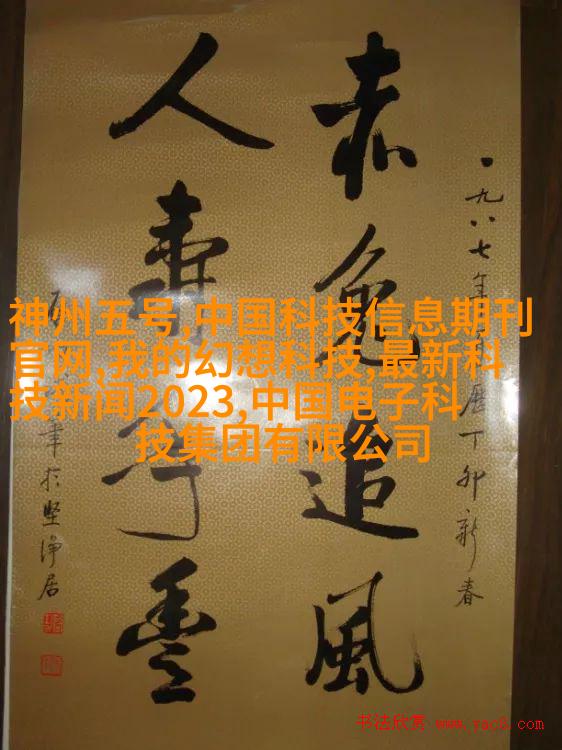 一九八七年曆丁卯新春
赤兔追風
人壽年豐
筆於堅淨居
神州五号,中国科技信息期刊
官网,我的幻想科技,最新科
技新闻2023,中国电子科
技集团有限公司
书法欣赏 www.yac8.com